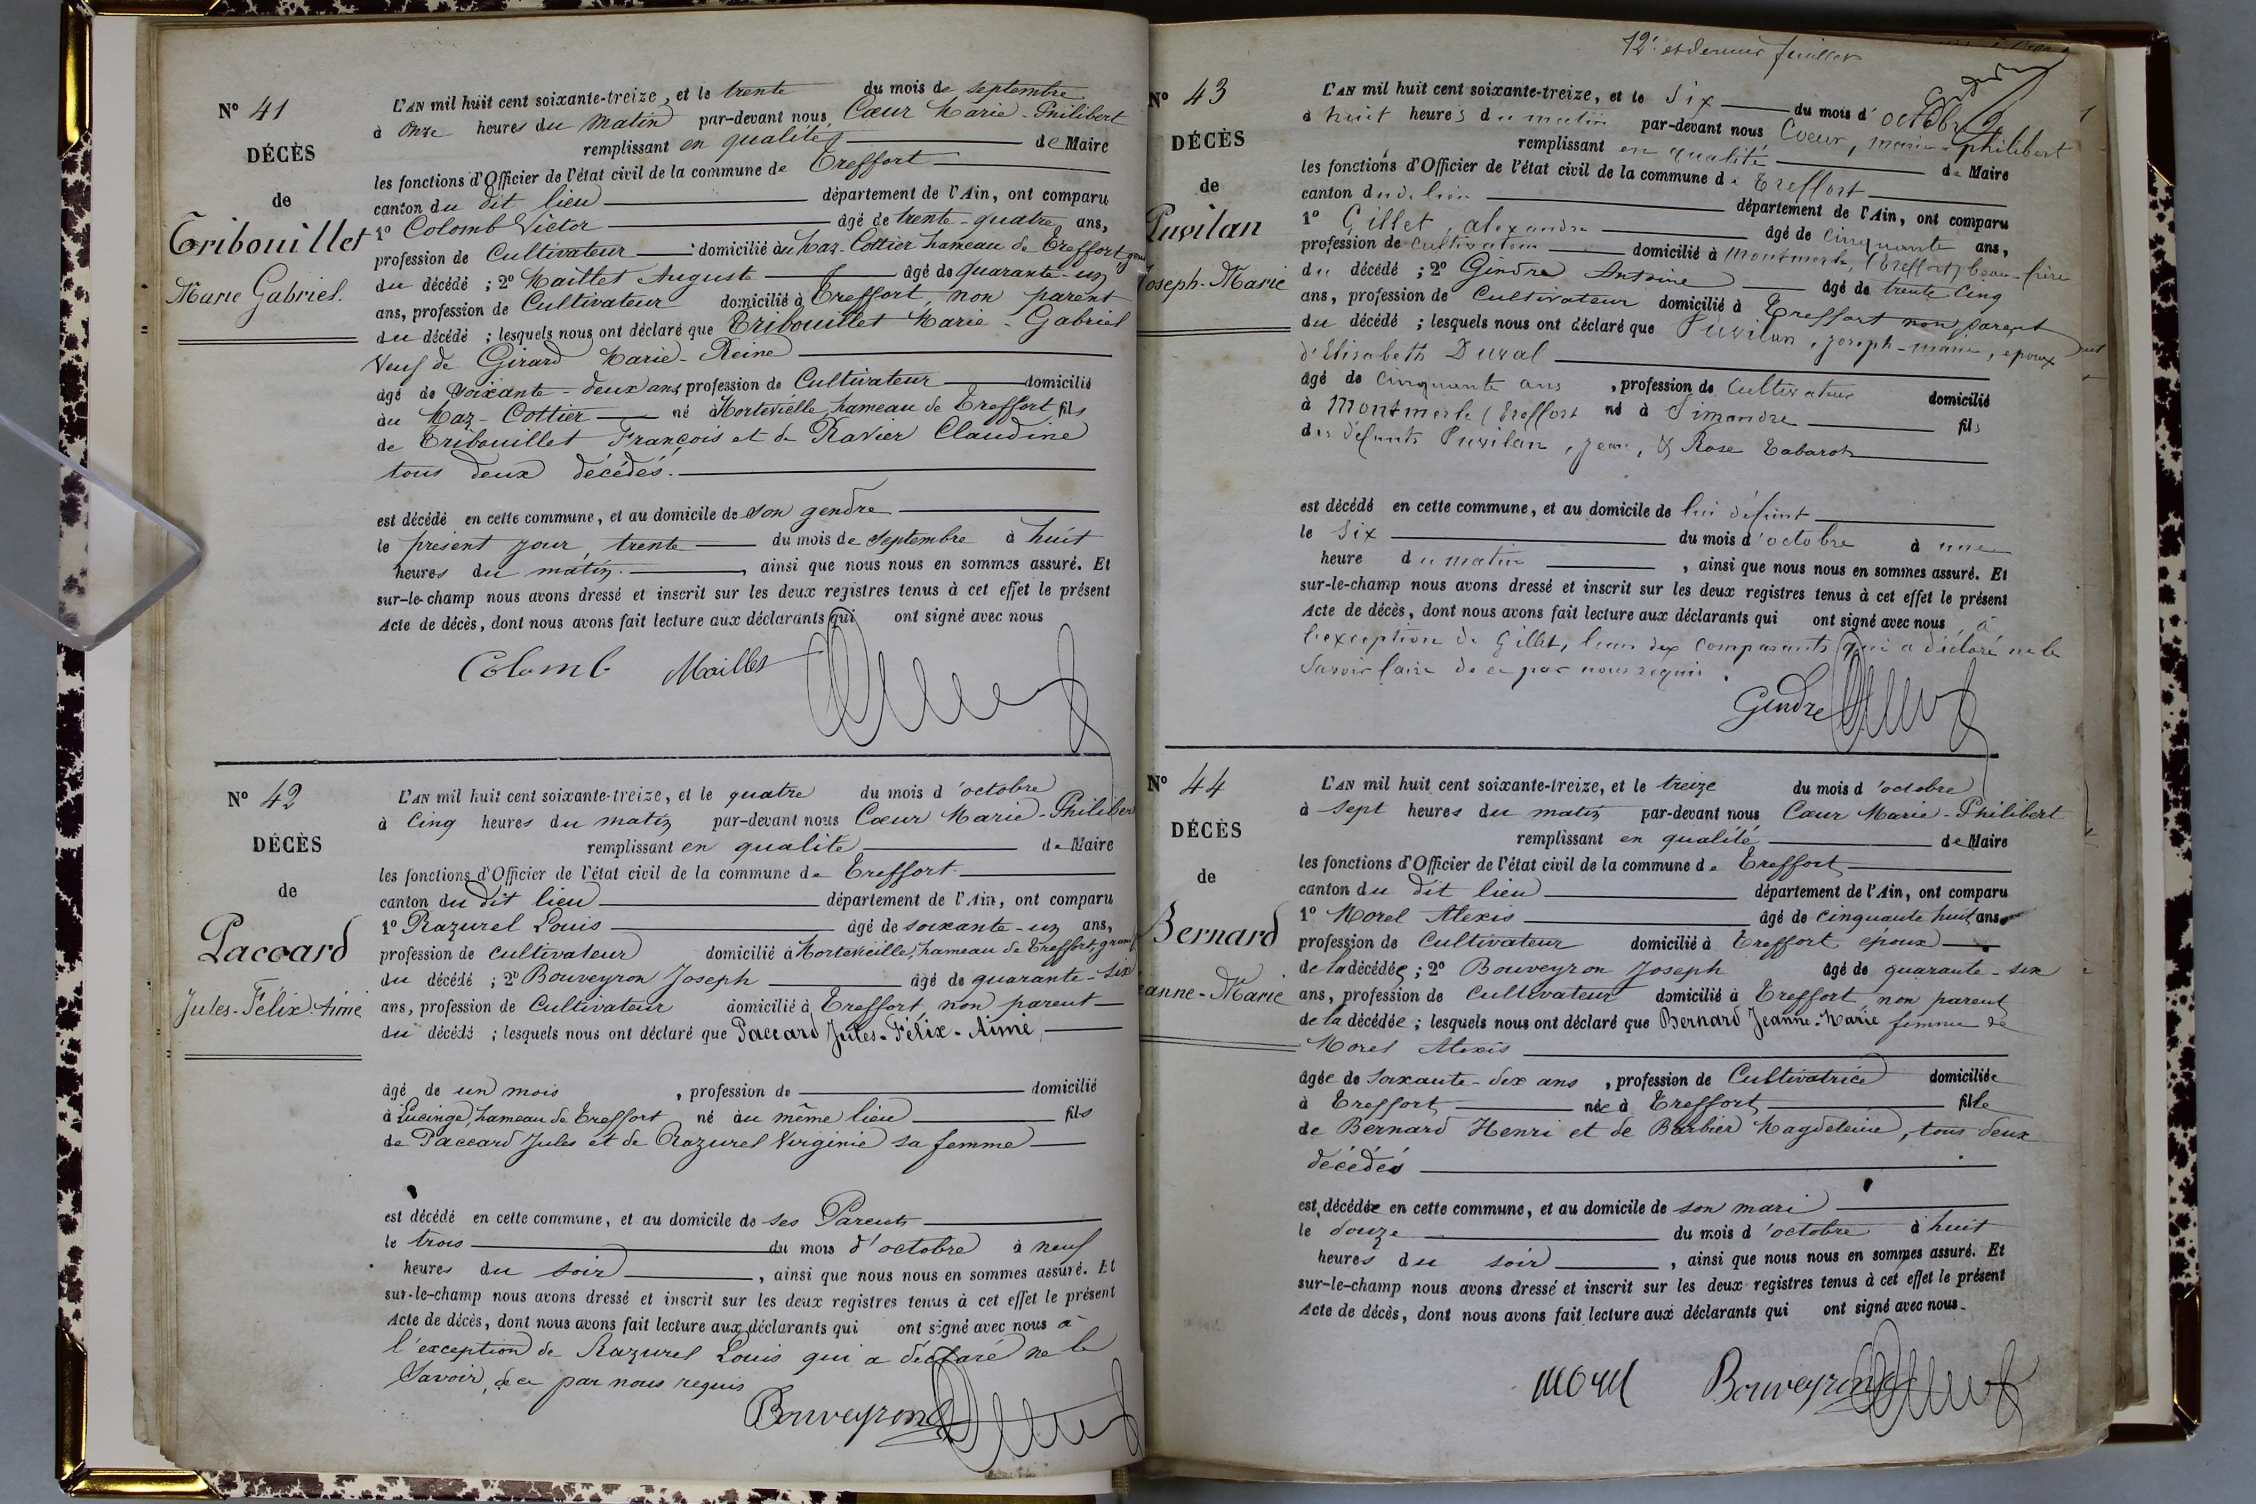 N° 41
DÉCÈS
de
Tribouillet
Marie Gabriel.
L'AN mil huit cent soixante-treize, et le trente du mois de septembre
à onze heures du matin par-devant nous Cœur Marie-Philibert
remplissant en qualité de Maire
les fonctions d'Officier de l'état civil de la commune de Treffort
canton du dit lieu département de l'Ain, ont comparu
1° Colomb Victor âgé de trente-quatre ans,
profession de Cultivateur domicilié au Maz-Cottier hameau de Treffort
du décédé ; 2° Maillet Auguste âgé de quarante-un
ans, profession de Cultivateur domicilié à Treffort, non parent
du décédé ; lesquels nous ont déclaré que Tribouillet Marie-Gabriel
Veuf de Girard Marie-Reine
âgé de soixante-deux ans, profession de Cultivateur domicilié
au Maz-Cottier né à Mortevieille hameau de Treffort fils
de Tribouillet François et de Ravier Claudine
tous deux décédés.
est décédé en cette commune, et au domicile de son gendre
le présent jour, trente du mois de septembre à huit
heures du matin. , ainsi que nous nous en sommes assuré. Et
sur-le-champ nous avons dressé et inscrit sur les deux registres tenus à cet effet le présent
Acte de décès, dont nous avons fait lecture aux déclarants qui ont signé avec nous
Colomb Maillet
N° 42
DÉCÈS
de
Paccard
Jules-Félix-Aimé
L'AN mil huit cent soixante-treize, et le quatre du mois d'octobre
à cinq heures du matin par-devant nous Cœur Marie-Philibert
remplissant en qualité de Maire
les fonctions d'Officier de l'état civil de la commune de Treffort
canton du dit lieu département de l'Ain, ont comparu
1° Razurel Louis âgé de soixante-un ans,
profession de cultivateur domicilié à Mortevieille, hameau de Treffort, grand
du décédé ; 2° Bouveyron Joseph âgé de quarante-six
ans, profession de Cultivateur domicilié à Treffort, non parent
du décédé ; lesquels nous ont déclaré que Paccard Jules-Félix-Aimé
âgé de un mois , profession de domicilié
à Lucinge, hameau de Treffort né au même lieu fils
de Paccard Jules et de Razurel Virginie sa femme
est décédé en cette commune, et au domicile de ses Parents
le trois du mois d'octobre à neuf
heures du soir , ainsi que nous nous en sommes assuré. Et
sur-le-champ nous avons dressé et inscrit sur les deux registres tenus à cet effet le présent
Acte de décès, dont nous avons fait lecture aux déclarants qui ont signé avec nous à
l'exception de Razurel Louis qui a déclaré ne le
savoir, de ce par nous requis
Bouveyron
12e et dernier feuillet
N° 43
DÉCÈS
de
Puvilan
Joseph-Marie
L'AN mil huit cent soixante-treize, et le six du mois d'octobre
à huit heures du matin par-devant nous Cœur, marie-philibert
remplissant en qualité de Maire
les fonctions d'Officier de l'état civil de la commune de Treffort
canton du dit lieu département de l'Ain, ont comparu
1° Gillet, alexandre âgé de cinquante ans,
profession de cultivateur domicilié à montmerle, (treffort) beau-frère
du décédé ; 2° Gindre Antoine âgé de trente cinq
ans, profession de Cultivateur domicilié à Treffort non parent
du décédé ; lesquels nous ont déclaré que Puvilan, joseph-marie, epoux
d'Elisabeth Duval
âgé de cinquante ans , profession de Cultivateur domicilié
à Montmerle (treffort né à Simandre fils
des défunts Puvilan, jean, & Rose Tabarot
est décédé en cette commune, et au domicile de lui défunt
le six du mois d'octobre à une
heure du matin , ainsi que nous nous en sommes assuré. Et
sur-le-champ nous avons dressé et inscrit sur les deux registres tenus à cet effet le présent
Acte de décès, dont nous avons fait lecture aux déclarants qui ont signé avec nous, à
l'exception de Gillet, l'un des comparants qui a déclaré ne le
savoir faire de ce par nous requis.
Gindre
N° 44
DÉCÈS
de
Bernard
Jeanne-Marie
L'AN mil huit cent soixante-treize, et le treize du mois d'octobre
à sept heures du matin par-devant nous Cœur Marie-Philibert
remplissant en qualité de Maire
les fonctions d'Officier de l'état civil de la commune de Treffort
canton du dit lieu département de l'Ain, ont comparu
1° Morel Alexis âgé de cinquante huit ans
profession de Cultivateur domicilié à Treffort époux
de la décédée ; 2° Bouveyron Joseph âgé de quarante-six
ans, profession de Cultivateur domicilié à Treffort, non parent
de la décédée ; lesquels nous ont déclaré que Bernard Jeanne-Marie femme de
Morel Alexis
âgée de soixante-dix ans , profession de Cultivatrice domiciliée
à Treffort née à Treffort fille
de Bernard Henri et de Barbier Magdeleine, tous deux
décédés
est décédée en cette commune, et au domicile de son mari
le douze du mois d'octobre à huit
heures du soir , ainsi que nous nous en sommes assuré. Et
sur-le-champ nous avons dressé et inscrit sur les deux registres tenus à cet effet le présent
Acte de décès, dont nous avons fait lecture aux déclarants qui ont signé avec nous.
morel Bouveyron